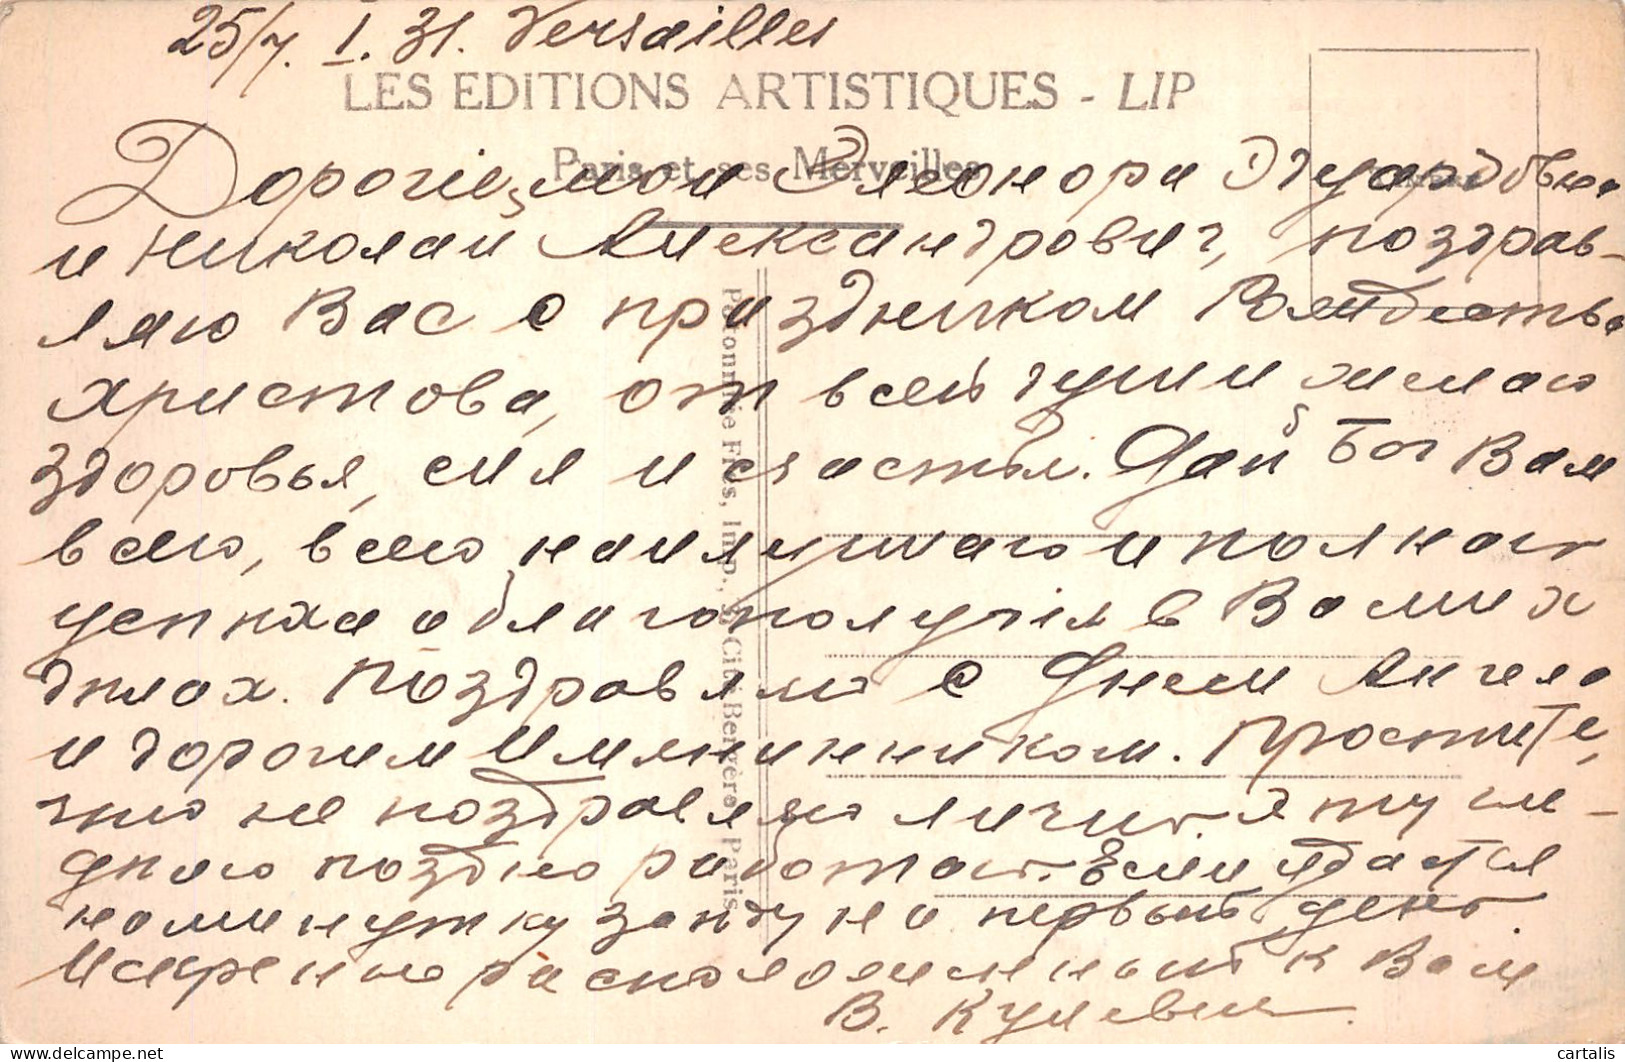 25/7. I. 31. Versailles
LES EDITIONS ARTISTIQUES - LIP
Paris et ses Merveilles
Дорогіе мои Элеонора Эдуардовна
и Николай Александрович, поздрав-
ляю Вас с праздником Рождества
Христова, от всей души желаю
здоровья, сил и счастья. Дай Бог Вам
всего, всего наилучшаго и полнаго
успеха и благополучія в Ваших
делах. Поздравляю с Днем Ангела
и дорогим Имянинником. Простите,
что не поздравляю лично. Я
поздно работаю. Если удастся
на минутку зайду на первый день.
Искренно расположенный к Вам
В.
Patonnie Frs, Imp., Cité Bergère, Paris